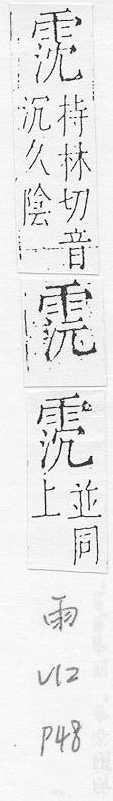 霃
持林切音
沉久陰
並同
上
雨
V12
P48